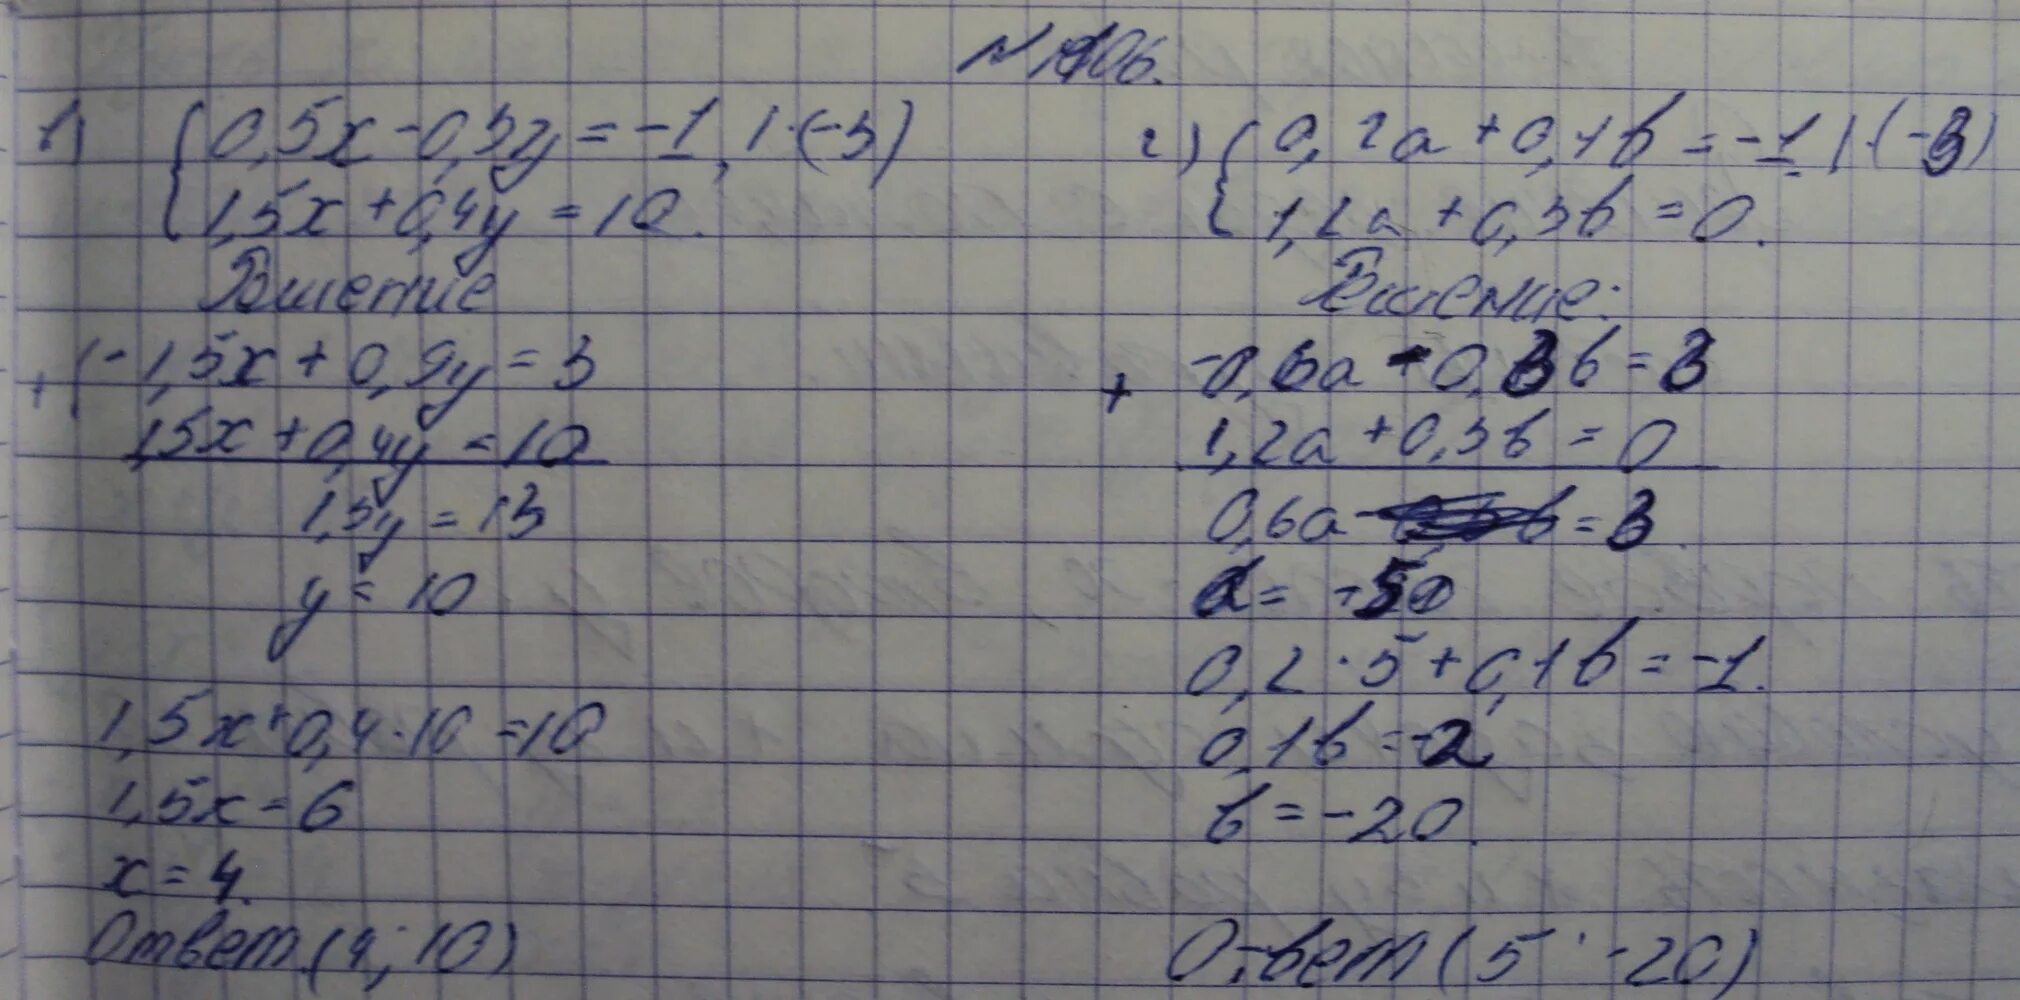 1) { 0,5x - 0,3y = -1, | · (-3)
1,5x + 0,4y = 10.
Решение
+ { -1,5x + 0,9y = 3
1,5x + 0,4y = 10
1,3y = 13
y = 10
1,5x + 0,4 · 10 = 10
1,5x = 6
x = 4.
Ответ (4; 10)
г) { 0,2a + 0,1b = -1 | · (-3)
1,2a + 0,3b = 0.
Решение:
+ -0,6a - 0,3b = 3
1,2a + 0,3b = 0
0,6a = 3
0,2 · 5 + 0,1b = -1.
0,1b = -2
b = -20.
Ответ (5 ; -20)